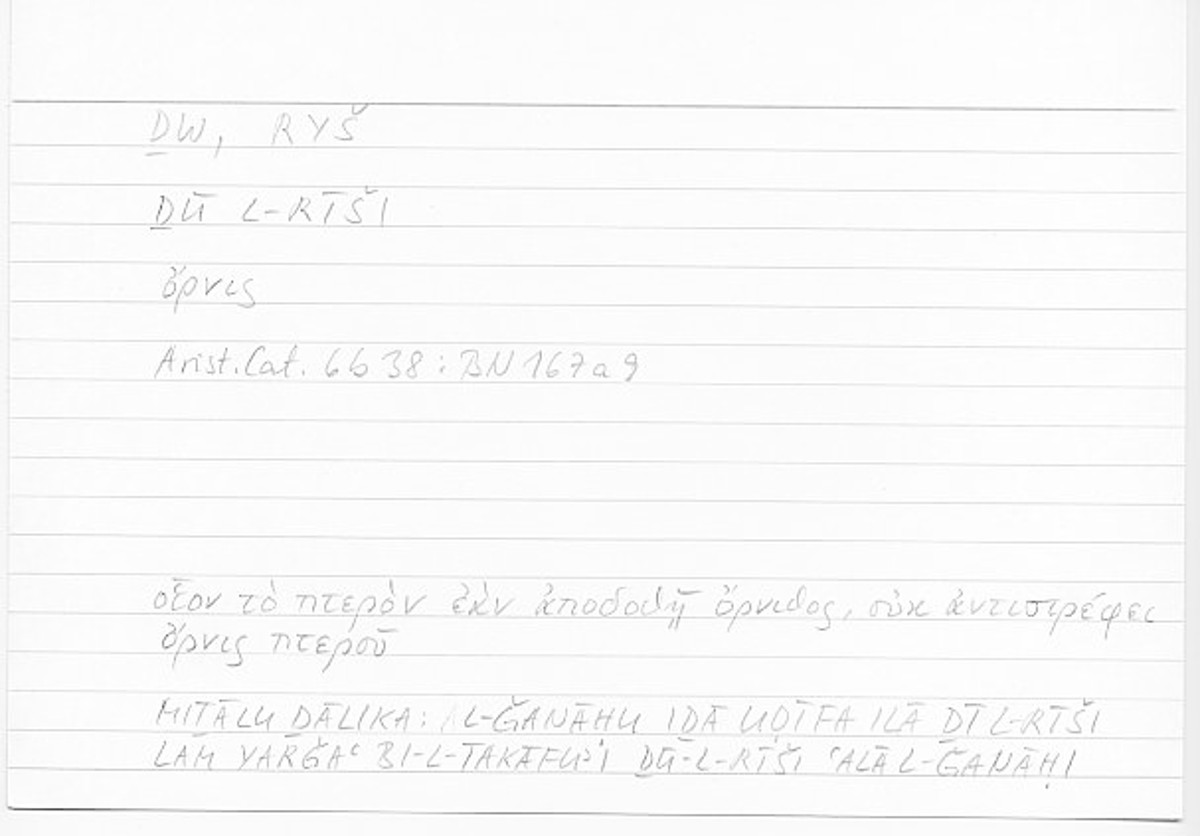 ḎW, RYŠ
ḎŪ L-RĪŠI
ὄρνις
Arist. Cat. 6b38 : BN 167a9
οἷον τὸ πτερὸν ἐὰν ἀποδοθῇ ὄρνιθος, οὐκ ἀντιστρέφει
ὄρνις πτεροῦ
MIṮĀLU ḎĀLIKA: AL-ǦANĀḤU IḎĀ UḌĪFA ILĀ ḎĪ L-RĪŠI
LAM YARǦAʿ BI-L-TAKĀFUʾI ḎŪ-L-RĪŠI ʿALĀ L-ǦANĀḤI